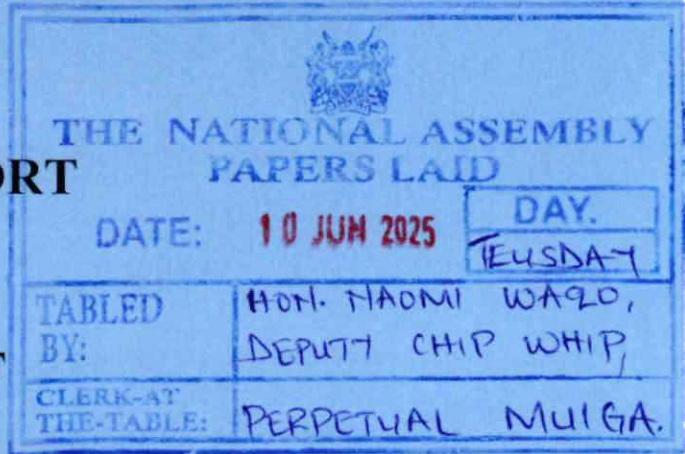 THE NATIONAL ASSEMBLY
PAPERS LAID
ORT
DATE: 10 JUN 2025 DAY.
TEUSDAY
TABLED BY: HON. NAOMI WAQO,
DEPUTY CHIP WHIP,
CLERK-AT THE-TABLE: PERPETUAL MUIGA.